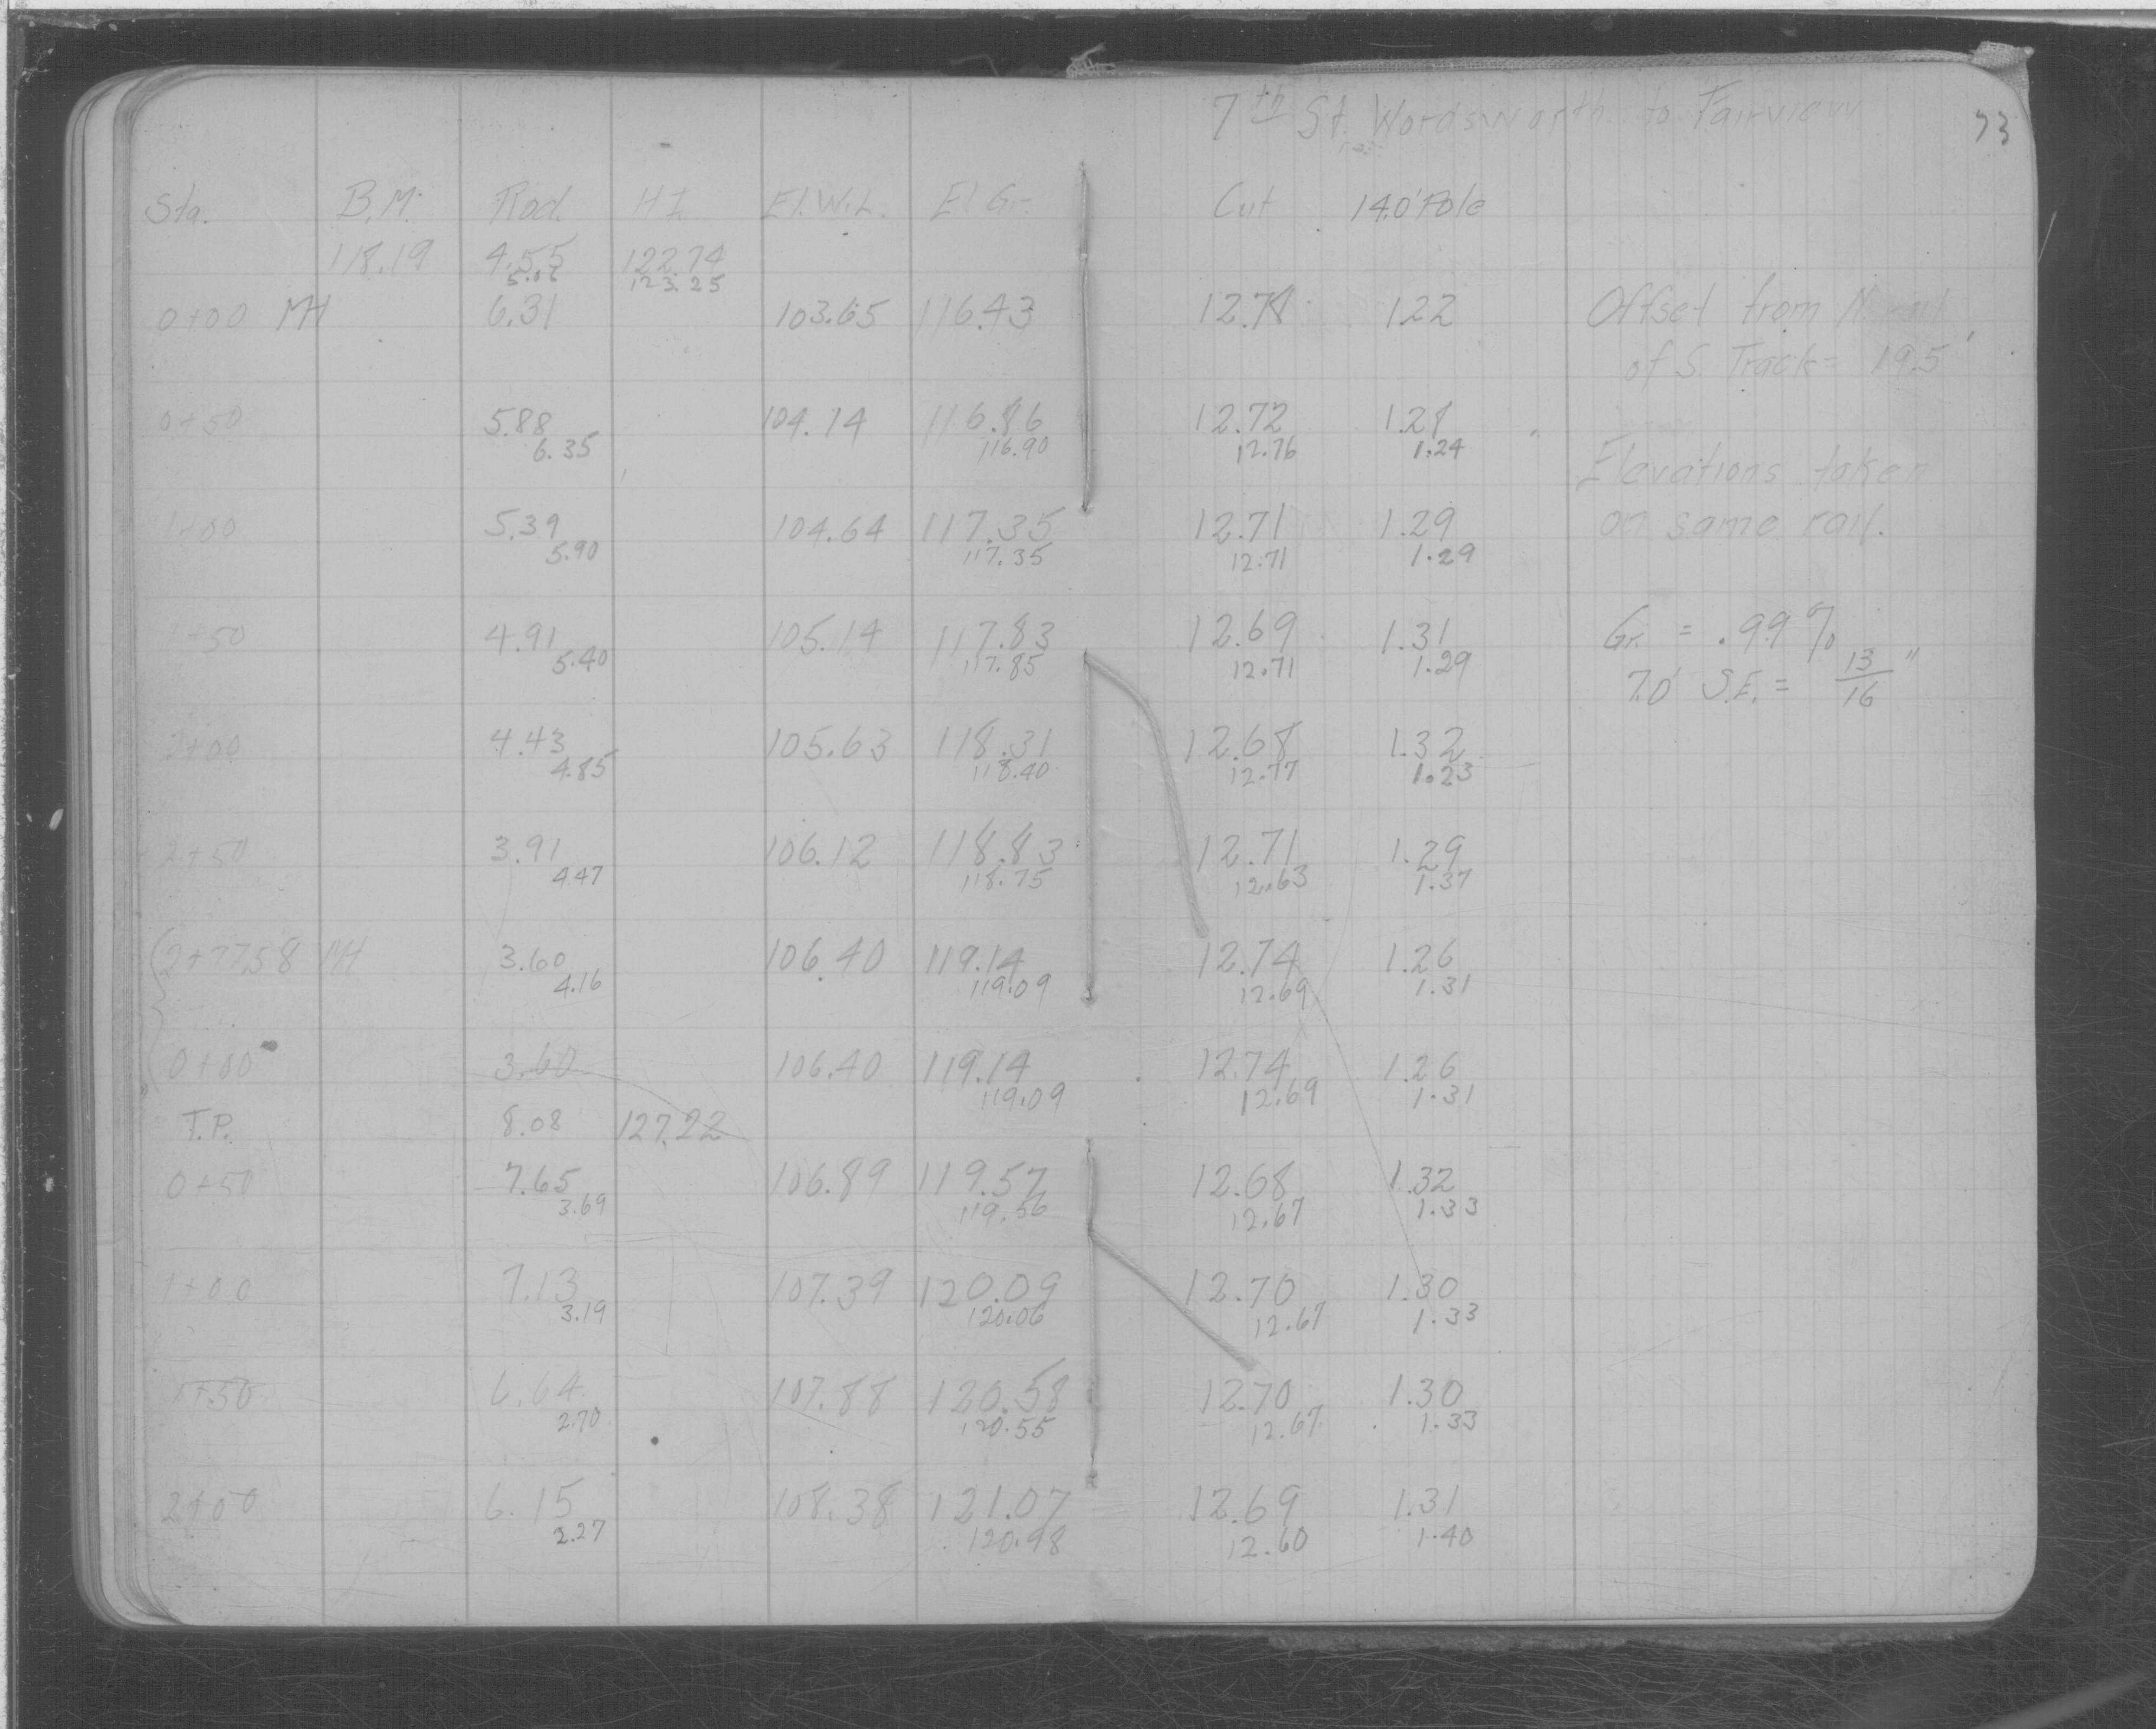 7th St. Wordsworth to Fairview 73
Sta. B.M. Rod. H.I. El.W.L. El Gr. Cut 14.0' Pole
118.19 4.55 122.74
5.06 123.25
0+00 MH 6.31 103.65 116.43 12.78 1.22 Offset from N. rail
of S. Track = 19.5'
0+50 5.88 104.14 116.86 12.72 1.28
6.35 116.90 12.76 1.24
Elevations taken
1+00 5.39 104.64 117.35 12.71 1.29 on same rail.
5.90 117.35 12.71 1.29
1+50 4.91 105.14 117.83 12.69 1.31 Gr. = .99%
5.40 117.85 12.71 1.29 7.0' S.E. = 13/16"
2+00 4.43 105.63 118.31 12.68 1.32
4.85 118.40 12.77 1.23
2+50 3.91 106.12 118.83 12.71 1.29
4.47 118.75 12.63 1.37
2+77.58 MH 3.60 106.40 119.14 12.74 1.26
4.16 119.09 12.69 1.31
0+00 3.60 106.40 119.14 12.74 1.26
119.09 12.69 1.31
T.P. 8.08 127.22
0+50 7.65 106.89 119.57 12.68 1.32
3.69 119.56 12.67 1.33
1+00 7.13 107.39 120.09 12.70 1.30
3.19 120.06 12.67 1.33
1+50 6.64 107.88 120.58 12.70 1.30
2.70 120.55 12.67 1.33
2+00 6.15 108.38 121.07 12.69 1.31
2.27 120.98 12.60 1.40